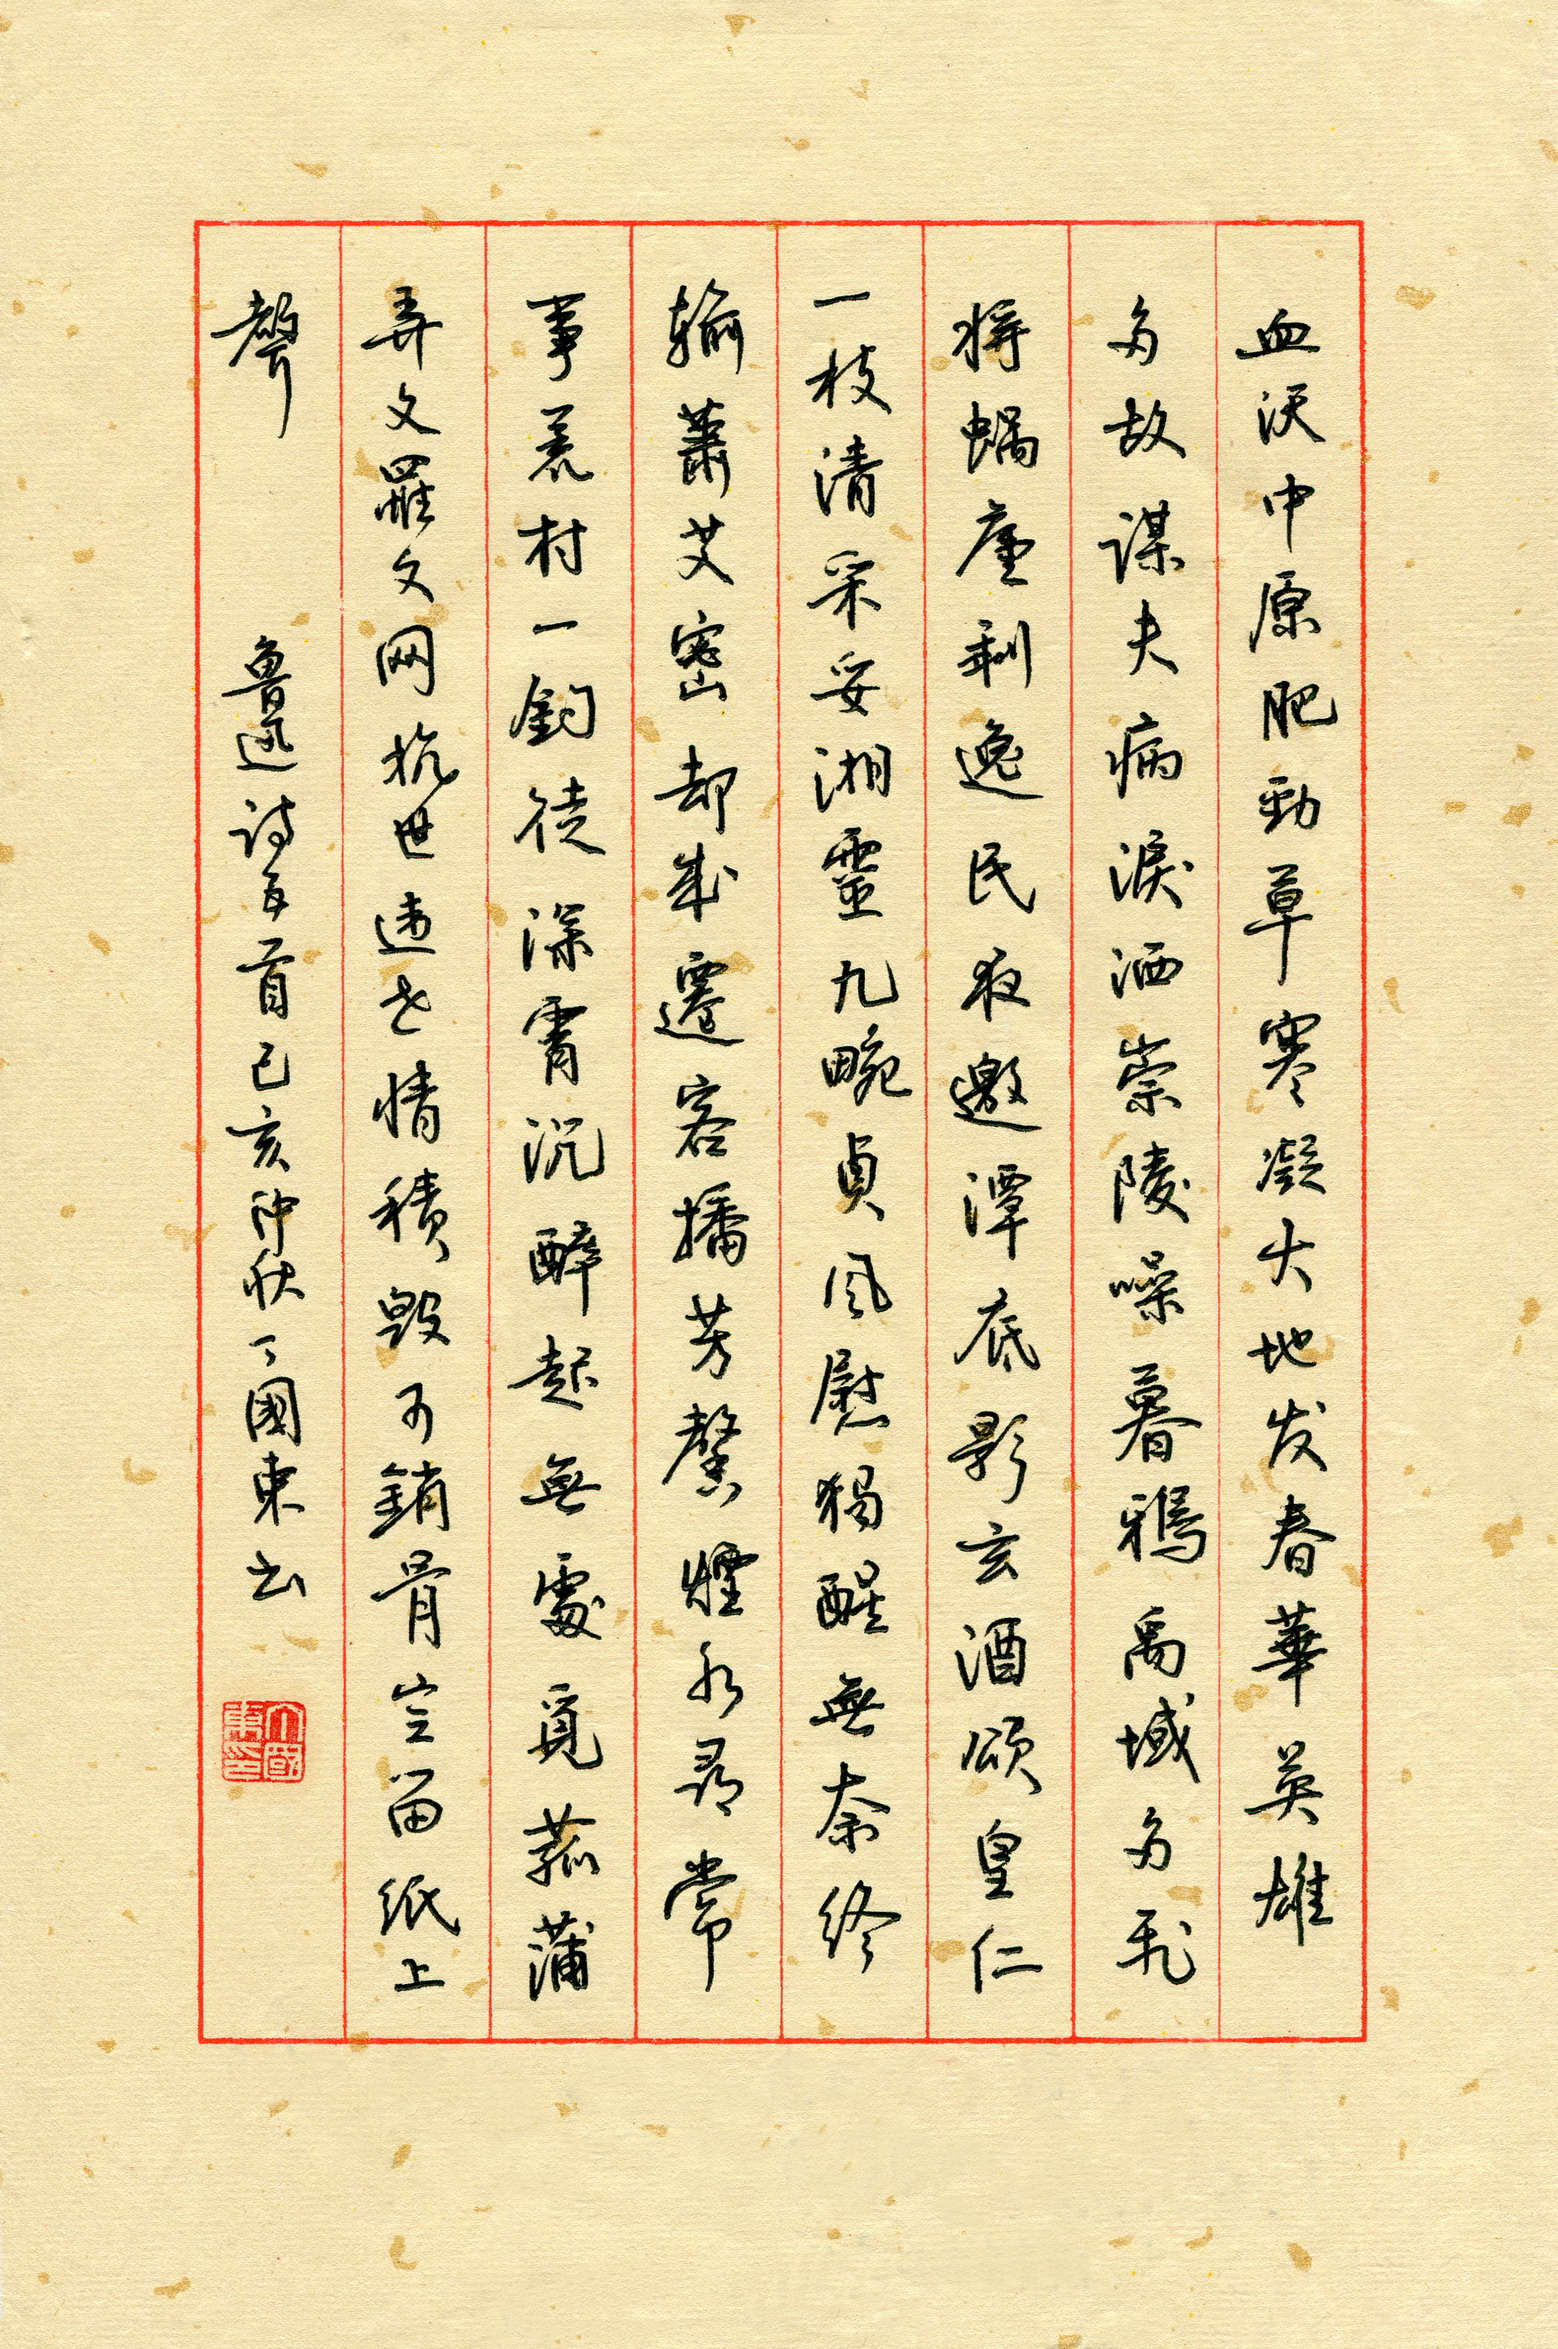 血沃中原肥勁草寒凝大地发春華英雄
多故謀夫病淚洒崇陵噪暮鴉禹域多飛
將蝸廬剩逸民夜邀潭底影玄酒頌皇仁
一枝清采妥湘靈九畹貞风慰獨醒無奈終
輸蕭艾密却成遷客播芳馨煙水尋常
事荒村一釣徒深宵沉醉起無處覓菰蒲
弄文罹文网抗世违世情積毀可銷骨空留纸上
聲
魯迅诗五首己亥仲秋丁國東书